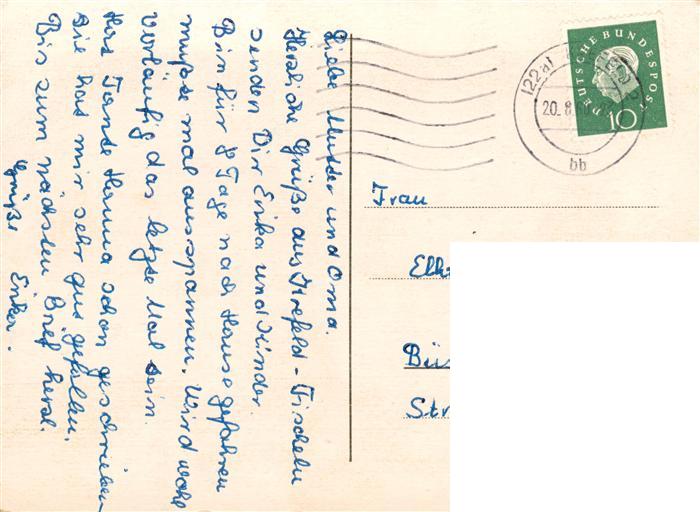 Liebe Mutter und Oma.
Herzliche Grüße aus Krefeld-Fischeln
senden Dir Erika und Kinder.
Bin für 8 Tage nach Hause gefahren
mußte mal ausspannen. Wird wohl
vorläufig das letzte Mal sein.
Hat Tante Hanna schon geschrieben
die hat mir sehr gut gefallen.
Bis zum nächsten Brief herzl.
Grüße Erika.
DEUTSCHE BUNDESPOST
10
20.8.
bb
Frau